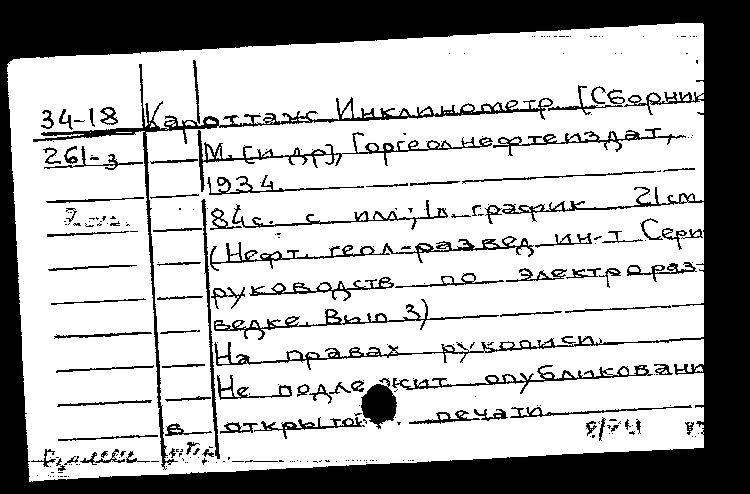 34-18 Кароттаж Инклинометр [Сборник]
261-3 М. [и др], Горгеолнефтеиздат,
1934.
84с. с илл; 1л. график 21см
(Нефт. геол-развед ин-т Сери
руководств по электрораз-
ведке. Вып 3)
На правах рукописи.
Не подлежит опубликовани
в открытой печати.